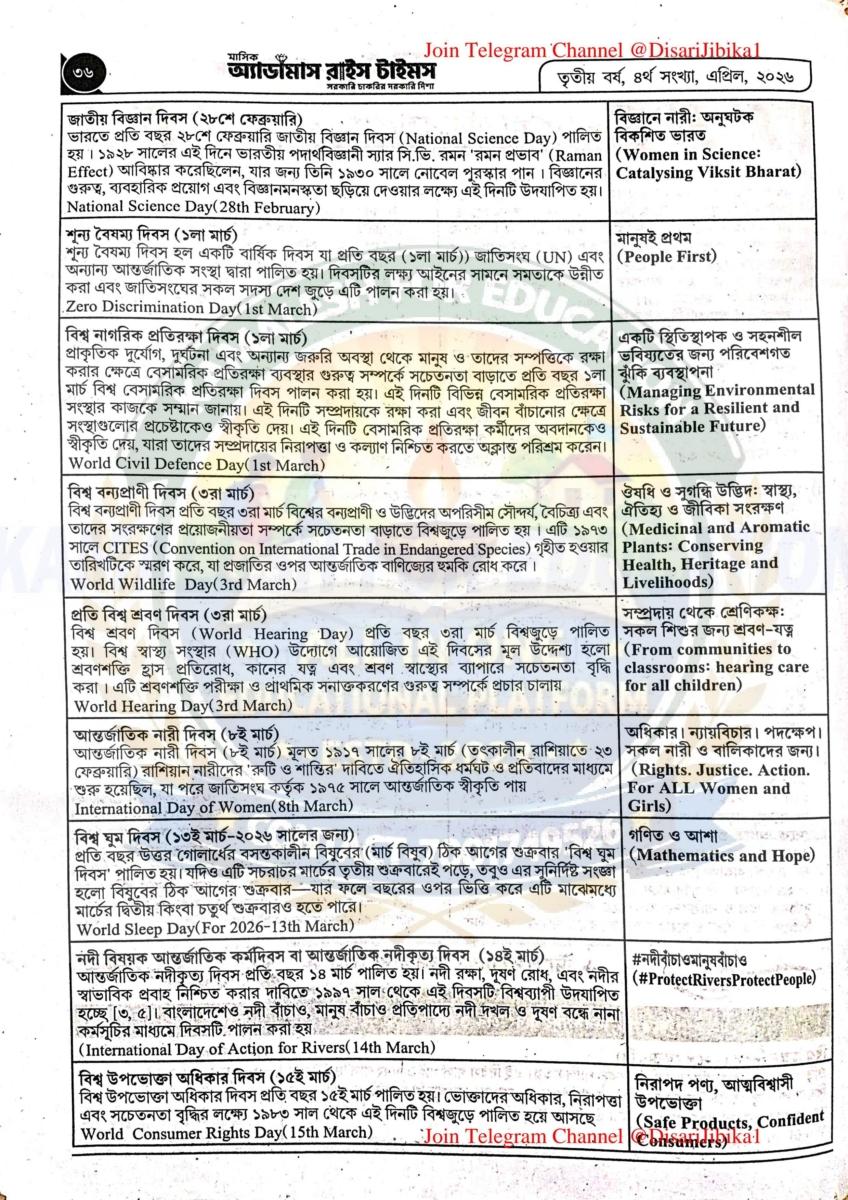 Join Telegram Channel @DisariJibika1
৩৬
মাসিক
অ্যাডামাস রাইস টাইমস
সরকারি চাকরির দরকারি দিশা
তৃতীয় বর্ষ, ৪র্থ সংখ্যা, এপ্রিল, ২০২৬
জাতীয় বিজ্ঞান দিবস (২৮শে ফেব্রুয়ারি)
ভারতে প্রতি বছর ২৮শে ফেব্রুয়ারি জাতীয় বিজ্ঞান দিবস (National Science Day) পালিত
হয়। ১৯২৮ সালের এই দিনে ভারতীয় পদার্থবিজ্ঞানী স্যার সি.ভি. রমন 'রমন প্রভাব' (Raman
Effect) আবিষ্কার করেছিলেন, যার জন্য তিনি ১৯৩০ সালে নোবেল পুরস্কার পান। বিজ্ঞানের
গুরুত্ব, ব্যবহারিক প্রয়োগ এবং বিজ্ঞানমনস্কতা ছড়িয়ে দেওয়ার লক্ষ্যে এই দিনটি উদযাপিত হয়।
National Science Day(28th February)
বিজ্ঞানে নারী: অনুঘটক
বিকশিত ভারত
(Women in Science:
Catalysing Viksit Bharat)
শূন্য বৈষম্য দিবস (১লা মার্চ)
শূন্য বৈষম্য দিবস হল একটি বার্ষিক দিবস যা প্রতি বছর (১লা মার্চ)) জাতিসংঘ (UN) এবং
অন্যান্য আন্তর্জাতিক সংস্থা দ্বারা পালিত হয়। দিবসটির লক্ষ্য আইনের সামনে সমতাকে উন্নীত
করা এবং জাতিসংঘের সকল সদস্য দেশ জুড়ে এটি পালন করা হয়।
Zero Discrimination Day(1st March)
মানুষই প্রথম
(People First)
বিশ্ব নাগরিক প্রতিরক্ষা দিবস (১লা মার্চ)
প্রাকৃতিক দুর্যোগ, দুর্ঘটনা এবং অন্যান্য জরুরি অবস্থা থেকে মানুষ ও তাদের সম্পত্তিকে রক্ষা
করার ক্ষেত্রে বেসামরিক প্রতিরক্ষা ব্যবস্থার গুরুত্ব সম্পর্কে সচেতনতা বাড়াতে প্রতি বছর ১লা
মার্চ বিশ্ব বেসামরিক প্রতিরক্ষা দিবস পালন করা হয়। এই দিনটি বিভিন্ন বেসামরিক প্রতিরক্ষা
সংস্থার কাজকে সম্মান জানায়। এই দিনটি সম্প্রদায়কে রক্ষা করা এবং জীবন বাঁচানোর ক্ষেত্রে
সংস্থাগুলোর প্রচেষ্টাকেও স্বীকৃতি দেয়। এই দিনটি বেসামরিক প্রতিরক্ষা কর্মীদের অবদানকেও
স্বীকৃতি দেয়, যারা তাদের সম্প্রদায়ের নিরাপত্তা ও কল্যাণ নিশ্চিত করতে অক্লান্ত পরিশ্রম করেন।
World Civil Defence Day(1st March)
একটি স্থিতিস্থাপক ও সহনশীল
ভবিষ্যতের জন্য পরিবেশগত
ঝুঁকি ব্যবস্থাপনা
(Managing Environmental
Risks for a Resilient and
Sustainable Future)
বিশ্ব বন্যপ্রাণী দিবস (৩রা মার্চ)
বিশ্ব বন্যপ্রাণী দিবস প্রতি বছর ৩রা মার্চ বিশ্বের বন্যপ্রাণী ও উদ্ভিদের অপরিসীম সৌন্দর্য, বৈচিত্র্য এবং
তাদের সংরক্ষণের প্রয়োজনীয়তা সম্পর্কে সচেতনতা বাড়াতে বিশ্বজুড়ে পালিত হয়। এটি ১৯৭৩
সালে CITES (Convention on International Trade in Endangered Species) গৃহীত হওয়ার
তারিখটিকে স্মরণ করে, যা প্রজাতির ওপর আন্তর্জাতিক বাণিজ্যের হুমকি রোধ করে।
World Wildlife Day(3rd March)
ঔষধি ও সুগন্ধি উদ্ভিদ: স্বাস্থ্য,
ঐতিহ্য ও জীবিকা সংরক্ষণ
(Medicinal and Aromatic
Plants: Conserving
Health, Heritage and
Livelihoods)
প্রতি বিশ্ব শ্রবণ দিবস (৩রা মার্চ)
বিশ্ব শ্রবণ দিবস (World Hearing Day) প্রতি বছর ৩রা মার্চ বিশ্বজুড়ে পালিত
হয়। বিশ্ব স্বাস্থ্য সংস্থার (WHO) উদ্যোগে আয়োজিত এই দিবসের মূল উদ্দেশ্য হলো
শ্রবণশক্তি হ্রাস প্রতিরোধ, কানের যত্ন এবং শ্রবণ স্বাস্থ্যের ব্যাপারে সচেতনতা বৃদ্ধি
করা। এটি শ্রবণশক্তি পরীক্ষা ও প্রাথমিক সনাক্তকরণের গুরুত্ব সম্পর্কে প্রচার চালায়
World Hearing Day(3rd March)
সম্প্রদায় থেকে শ্রেণিকক্ষ:
সকল শিশুর জন্য শ্রবণ-যত্ন
(From communities to
classrooms: hearing care
for all children)
আন্তর্জাতিক নারী দিবস (৮ই মার্চ)
আন্তর্জাতিক নারী দিবস (৮ই মার্চ) মূলত ১৯১৭ সালের ৮ই মার্চ (তৎকালীন রাশিয়াতে ২৩
ফেব্রুয়ারি) রাশিয়ান নারীদের 'রুটি ও শান্তির' দাবিতে ঐতিহাসিক ধর্মঘট ও প্রতিবাদের মাধ্যমে
শুরু হয়েছিল, যা পরে জাতিসংঘ কর্তৃক ১৯৭৫ সালে আন্তর্জাতিক স্বীকৃতি পায়
International Day of Women(8th March)
অধিকার। ন্যায়বিচার। পদক্ষেপ।
সকল নারী ও বালিকাদের জন্য।
(Rights. Justice. Action.
For ALL Women and
Girls)
বিশ্ব ঘুম দিবস (১৩ই মার্চ-২০২৬ সালের জন্য)
প্রতি বছর উত্তর গোলার্ধের বসন্তকালীন বিষুবের (মার্চ বিষুব) ঠিক আগের শুক্রবার 'বিশ্ব ঘুম
দিবস' পালিত হয়। যদিও এটি সচরাচর মার্চের তৃতীয় শুক্রবারেই পড়ে, তবুও এর সুনির্দিষ্ট সংজ্ঞা
হলো বিষুবের ঠিক আগের শুক্রবার—যার ফলে বছরের ওপর ভিত্তি করে এটি মাঝেমধ্যে
মার্চের দ্বিতীয় কিংবা চতুর্থ শুক্রবারও হতে পারে।
World Sleep Day(For 2026-13th March)
গণিত ও আশা
(Mathematics and Hope)
নদী বিষয়ক আন্তর্জাতিক কর্মদিবস বা আন্তর্জাতিক নদীকৃত্য দিবস (১৪ই মার্চ)
আন্তর্জাতিক নদীকৃত্য দিবস প্রতি বছর ১৪ মার্চ পালিত হয়। নদী রক্ষা, দূষণ রোধ, এবং নদীর
স্বাভাবিক প্রবাহ নিশ্চিত করার দাবিতে ১৯৯৭ সাল থেকে এই দিবসটি বিশ্বব্যাপী উদযাপিত
হচ্ছে [৩, ৫]। বাংলাদেশেও নদী বাঁচাও, মানুষ বাঁচাও প্রতিপাদ্যে নদী দখল ও দূষণ বন্ধে নানা
কর্মসূচির মাধ্যমে দিবসটি পালন করা হয়
(International Day of Action for Rivers(14th March)
#নদীবাঁচাওমানুষবাঁচাও
(#ProtectRiversProtectPeople)
বিশ্ব উপভোক্তা অধিকার দিবস (১৫ই মার্চ)
বিশ্ব উপভোক্তা অধিকার দিবস প্রতি বছর ১৫ই মার্চ পালিত হয়। ভোক্তাদের অধিকার, নিরাপত্তা
এবং সচেতনতা বৃদ্ধির লক্ষ্যে ১৯৮৩ সাল থেকে এই দিনটি বিশ্বজুড়ে পালিত হয়ে আসছে
World Consumer Rights Day(15th March)
নিরাপদ পণ্য, আত্মবিশ্বাসী
উপভোক্তা
(Safe Products, Confident
Consumers)
Join Telegram Channel @DisariJibika1